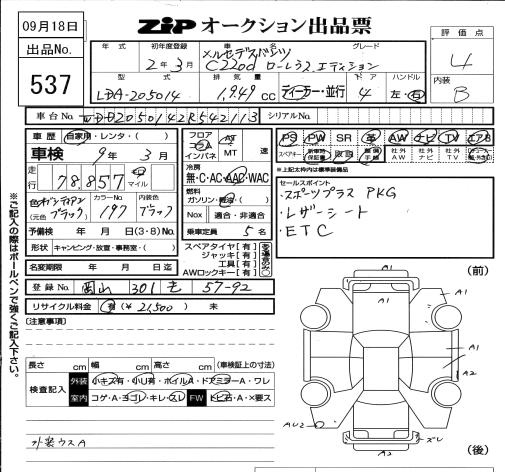 09月18日
出品No.
537
ZIP オークション出品票
評価点
4
内装
B
年式 初年度登録 車名 グレード
2年3月 メルセデスベンツ C220d ローレウスエディション
型式 排気量 ドア ハンドル
LDA-205014 1,949cc ディーラー・並行 4 左・右
車台No. WDD2050142R542113 シリアルNo.
車歴 自家用・レンタ・( )
車検 9年3月
走行 78,857 km マイル
色 オブシディアンブラック カラーNo. 197 内装色 ブラック
(元色 )
予備検 年 月 日(3・8)No.
形状 キャンピング・放置・事務室・( )
名変期限 年 月 日迄
フロア コラム インパネ AT MT 速
冷房
無・C・AC・AAC・WAC
燃料
ガソリン・軽油・( )
Nox 適合・非適合
乗車定員 5名
スペアタイヤ[有]
ジャッキ[有]
工具[有]
AWロックキー[有]
PS PW SR 革 AW ナビ TV エアB
スペアキー 新車時保証書 取説 整備手帳 社外AW 社外ナビ 社外TV
*上記太枠内は標準装備部品
セールスポイント
・スポーツプラス PKG
・レザーシート
・ETC
登録No. 岡山 301 も 57-92
リサイクル料金 有(¥21,500) 未
[注意事項]
長さ cm 幅 cm 高さ cm (車検証上の寸法)
検査記入 外装 小キズ有・小U有・ホイルA・ドアミラーA・ワレ
室内 コゲ・A・ヨゴレ・キレ・スレ FW トビ石・A・×要ス
外装ウスA
※ご記入の際はボールペンで強くご記入下さい。
(前)
A1
A1
A1
A1
A2
AU2
A2
ズレ
(後)